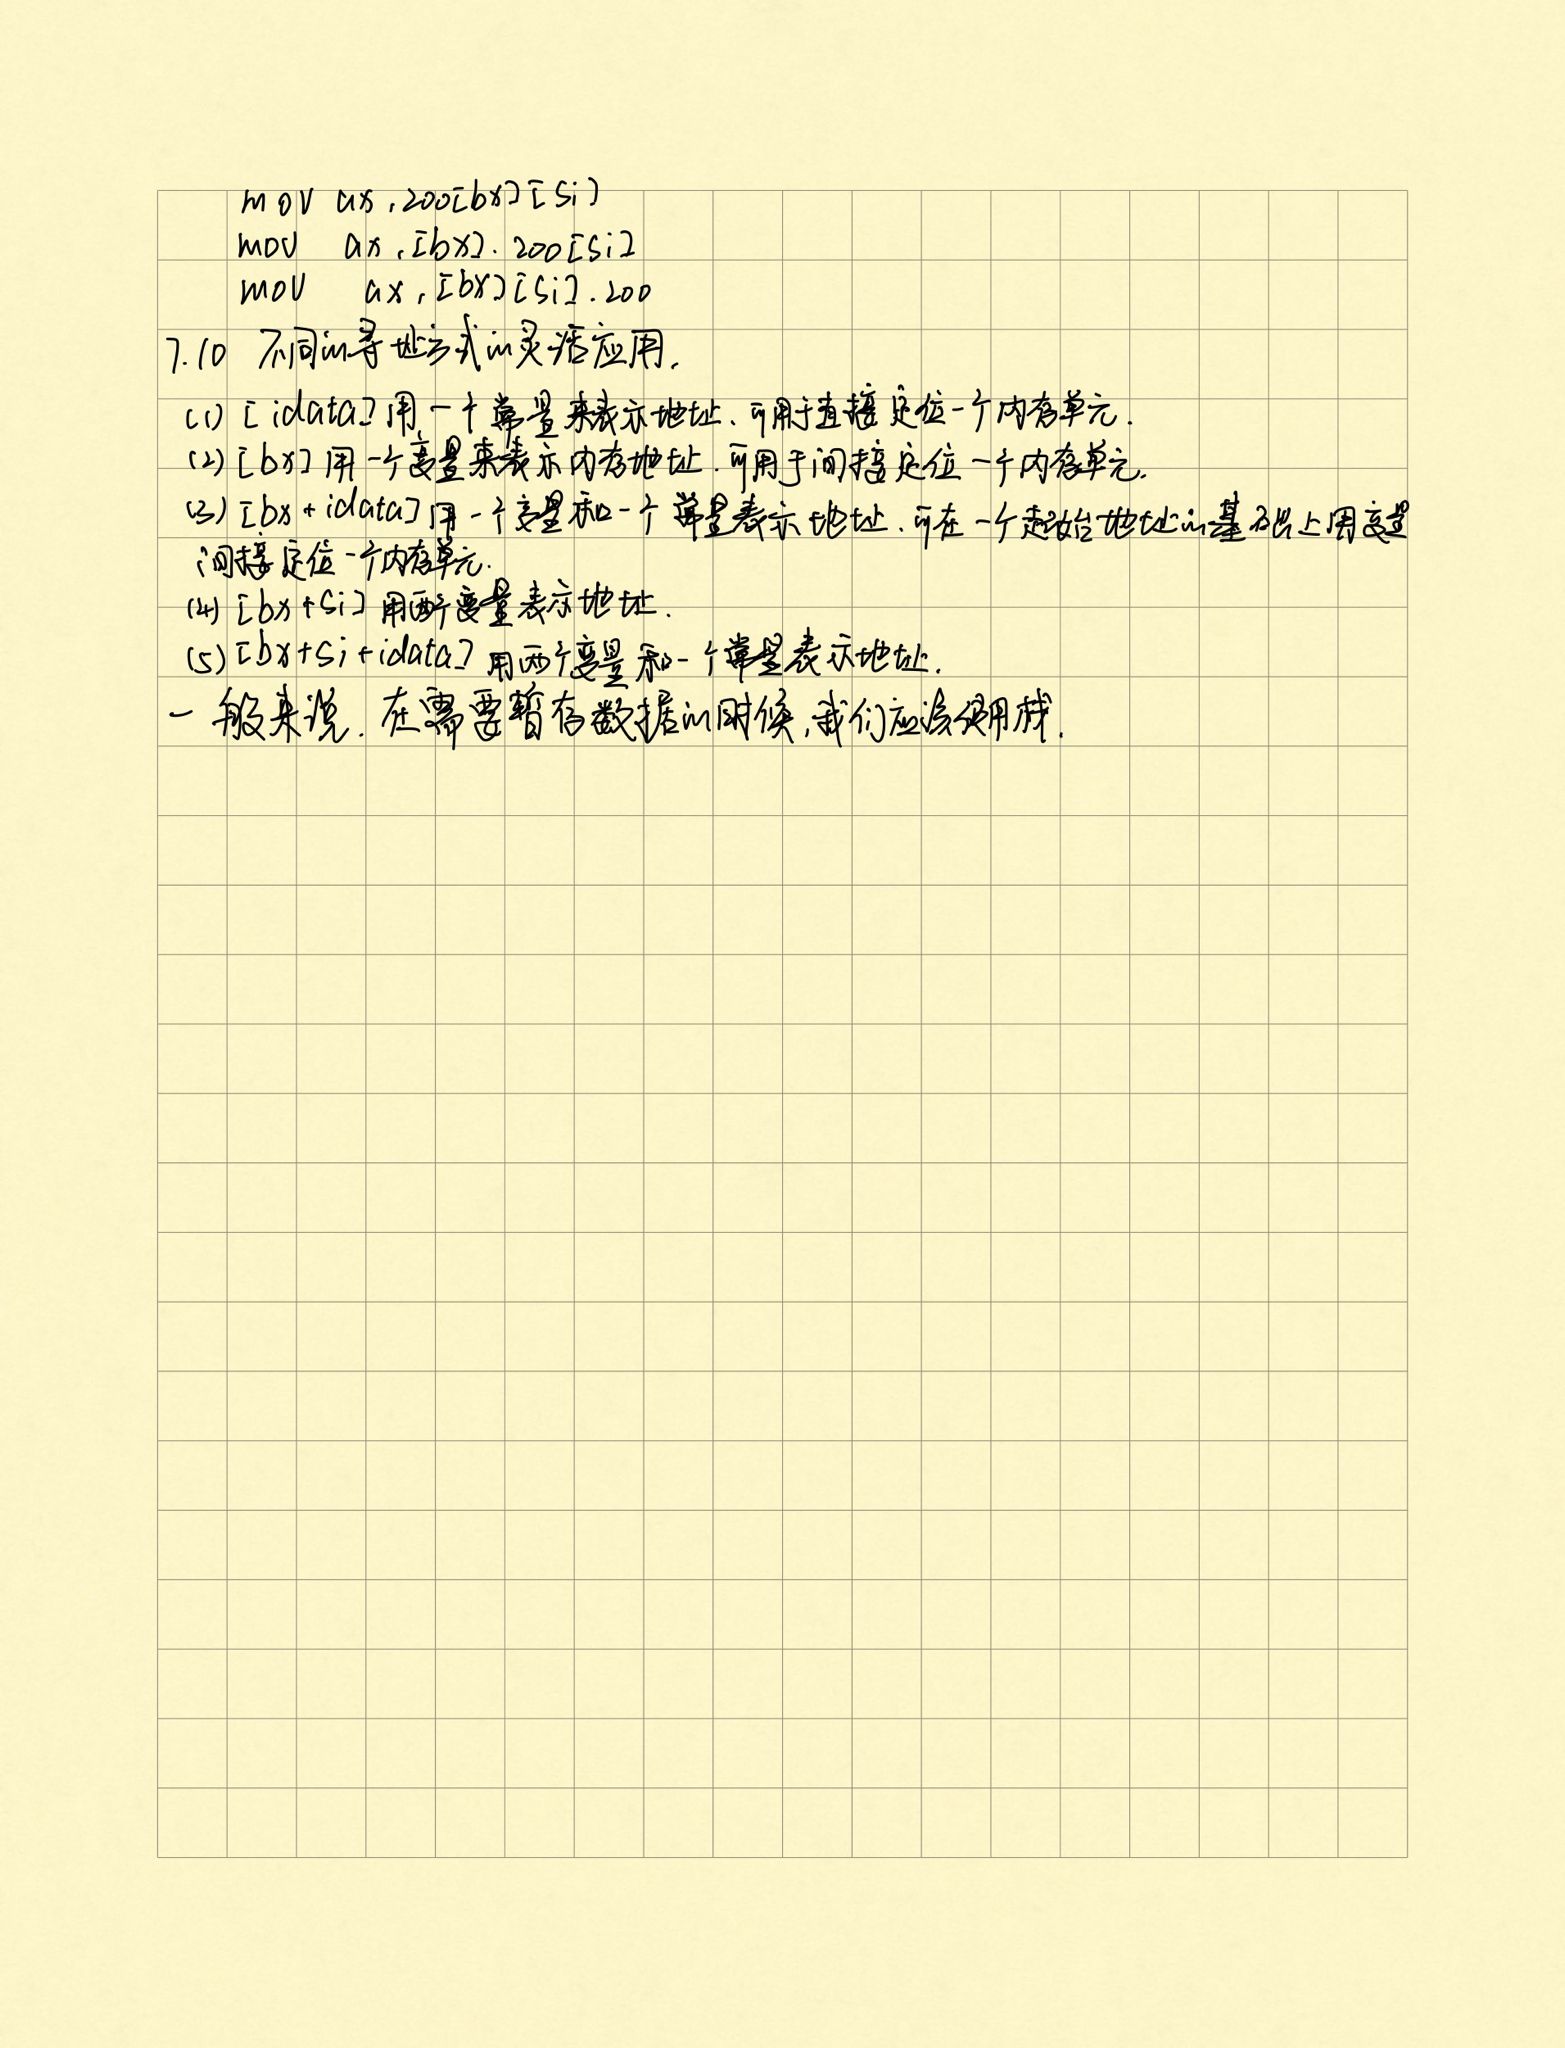 mov ax, 200[bx][si]
mov ax, [bx].200[si]
mov ax, [bx][si].200
7.10 不同的寻址方式的灵活应用.
(1) [idata]用一个常量来表示地址、可用于直接定位一个内存单元.
(2) [bx]用一个变量来表示内存地址.可用于间接定位一个内存单元.
(3) [bx+idata]用一个变量和一个常量表示地址.可在一个起始地址的基础上用变量
间接定位一个内存单元.
(4) [bx+si]用两个变量表示地址.
(5) [bx+si+idata]用两个变量和一个常量表示地址.
一般来说.在需要暂存数据的时候,我们应该使用栈.